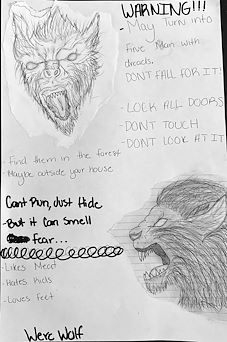 WARNING!!!
- May Turn into
Fine Man with
dreads.
DONT FALL FOR IT!
- LOCK ALL DOORS
- DONT TOUCH
- DONT LOOK AT IT
- Find them in the forest
- Maybe outside your house
Cant Run, Just Hide
- But it Can Smell
fear...
- Likes Meat
- Hates Kids
- Loves feet
Were Wolf